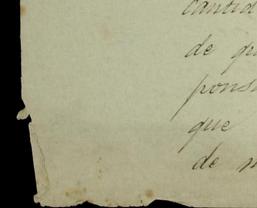 cantid
de qu
pons
que
de m